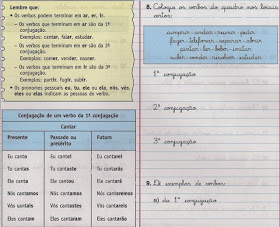 Lembre que:
• Os verbos podem terminar em ar, er, ir.
– Os verbos que terminam em ar são da 1ª
conjugação.
Exemplos: cantar, falar, estudar.
– Os verbos que terminam em er são da 2ª
conjugação.
Exemplos: comer, vender, nascer.
– Os verbos que terminam em ir são da 3ª
conjugação.
Exemplos: partir, fugir, subir.
• Os pronomes pessoais eu, tu, ele ou ela, nós, vós,
eles ou elas indicam as pessoas do verbo.
Conjugação de um verbo da 1ª conjugação
Cantar
Presente
Passado ou
pretérito
Futuro
Eu canto
Eu cantei
Eu cantarei
Tu cantas
Tu cantaste
Tu cantarás
Ele canta
Ele cantou
Ele cantará
Nós cantamos
Nós cantamos
Nós cantaremos
Vós cantais
Vós cantastes
Vós cantareis
Eles cantam
Eles cantaram
Eles cantarão
8. Coloque os verbos do quadro nos locais
certos:
fazer - telefonar - esperar - abrir
pintar - ler - beber - evitar
subir - vender - resolver - estudar
1ª conjugação
2ª conjugação
3ª conjugação
9. Dê exemplos de verbos:
a) da 1ª conjugação